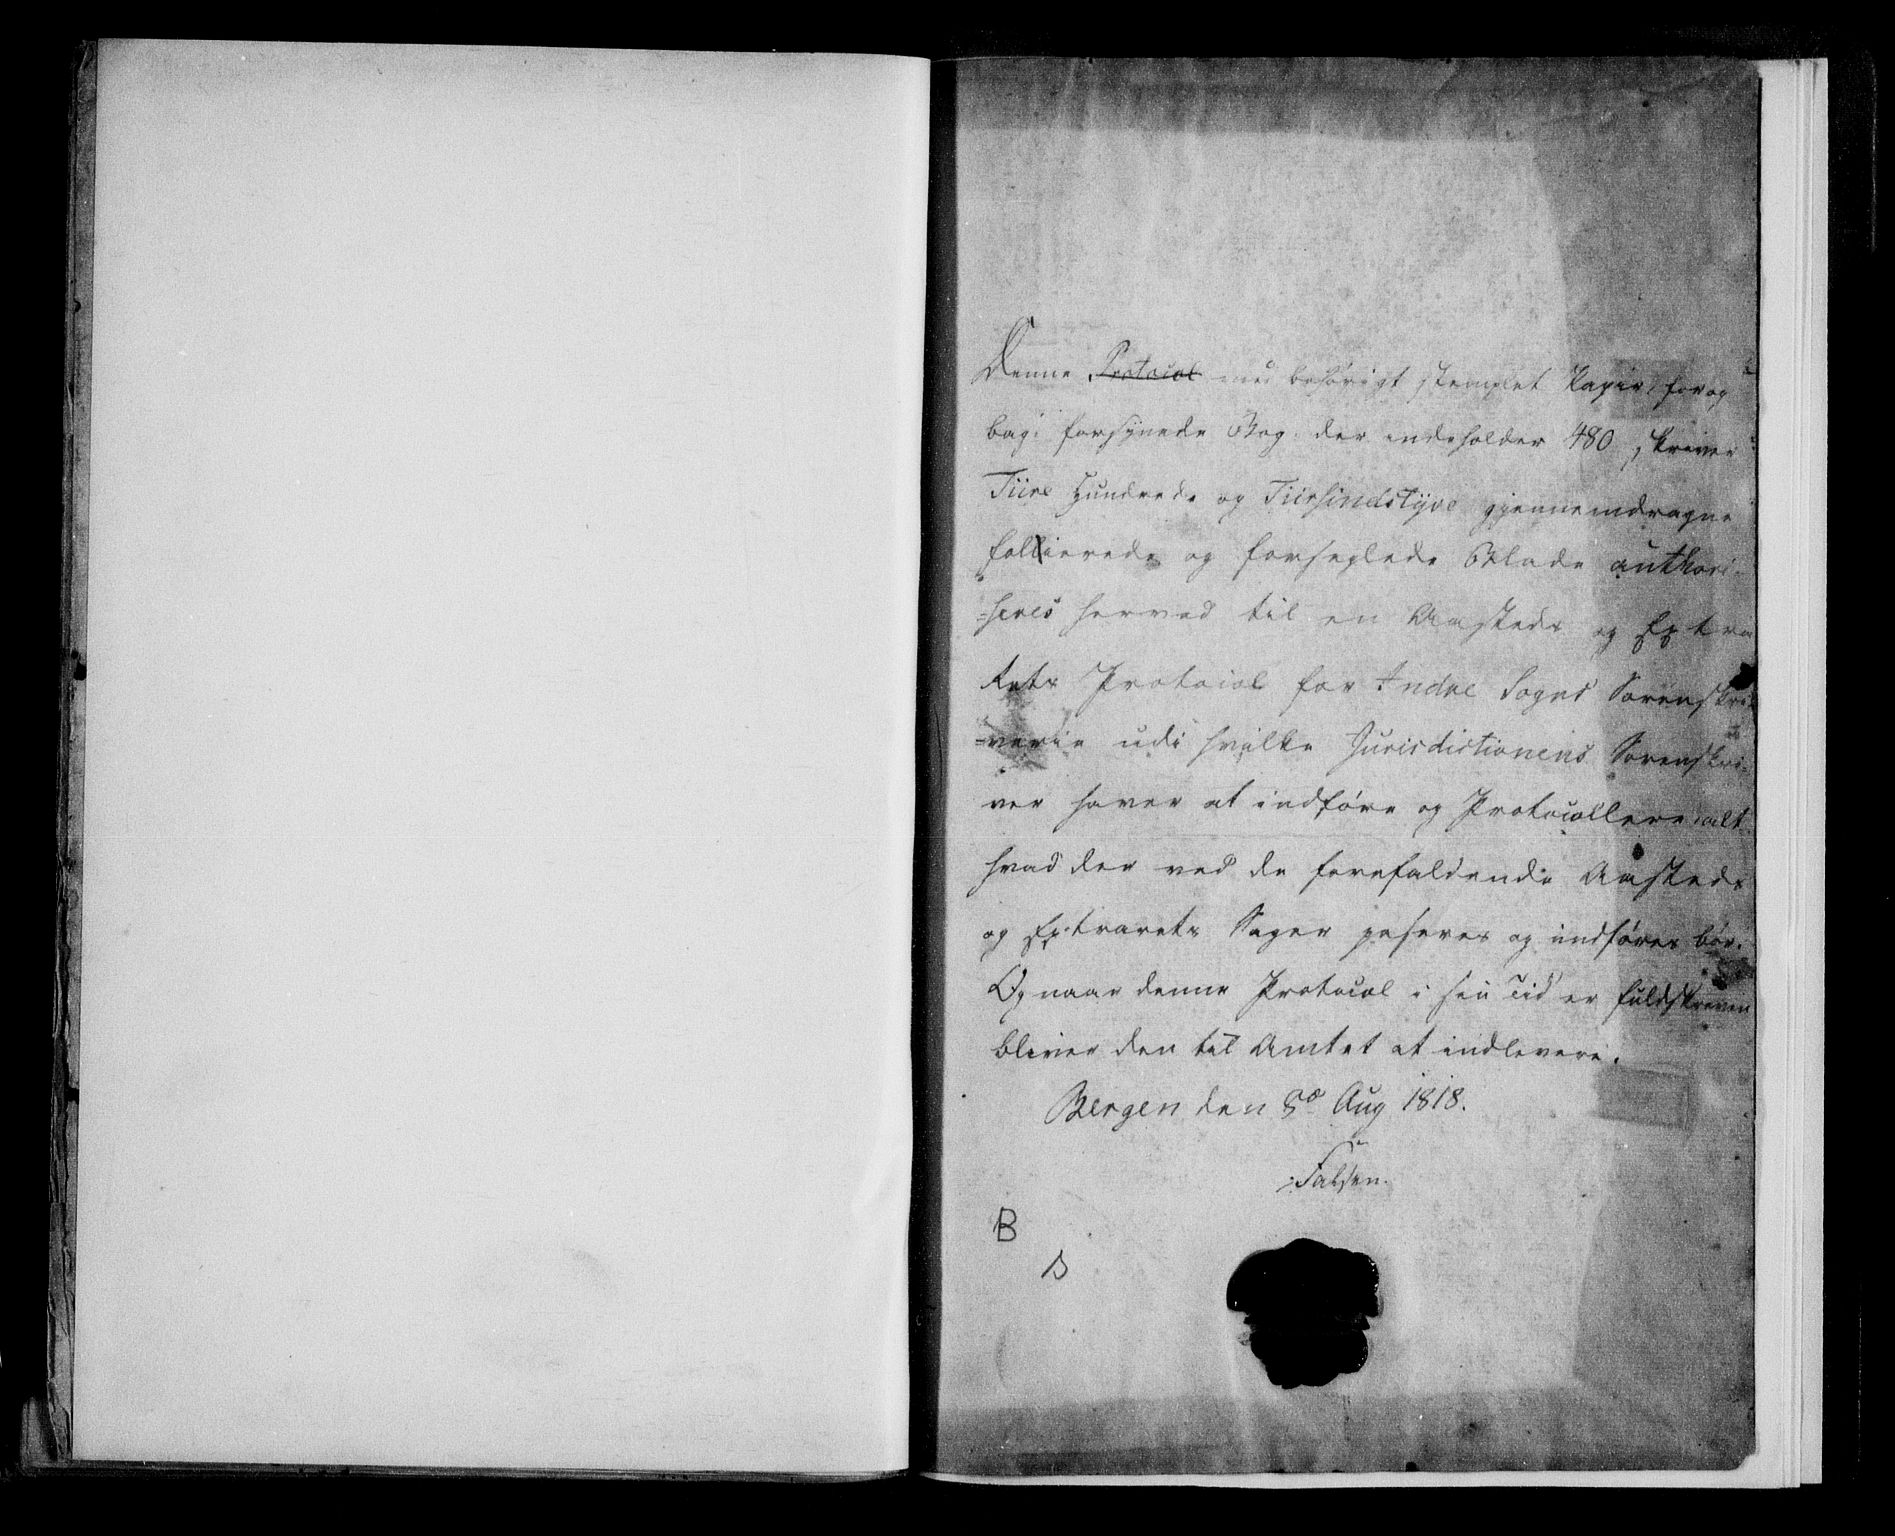 Denne Protocol med behörigt stemplet Papir, for og
bag: forsynede Bog, der indeholder 480 skriver
Fiire Hundrede og Fiirsindstyve gjennemdragne
follierede og forseglede Blade authori-
=seres herved til en Aasteds og Extra
Rets Protocol for Indre Sogns Sorenskri-
=verie udi hvilke Jurisdictionens Sorenskri-
ver haver at indföre og Protocollere alt
hvad der ved de forefaldende Aasteds
og Extrarets Sager paseres og indföres bör.
Og naar denne Protocol i sin Tid er fuldskreven
bliver den til Amtet at indlevere.
Bergen den 8de Aug 1818.
Falsen.
B
B